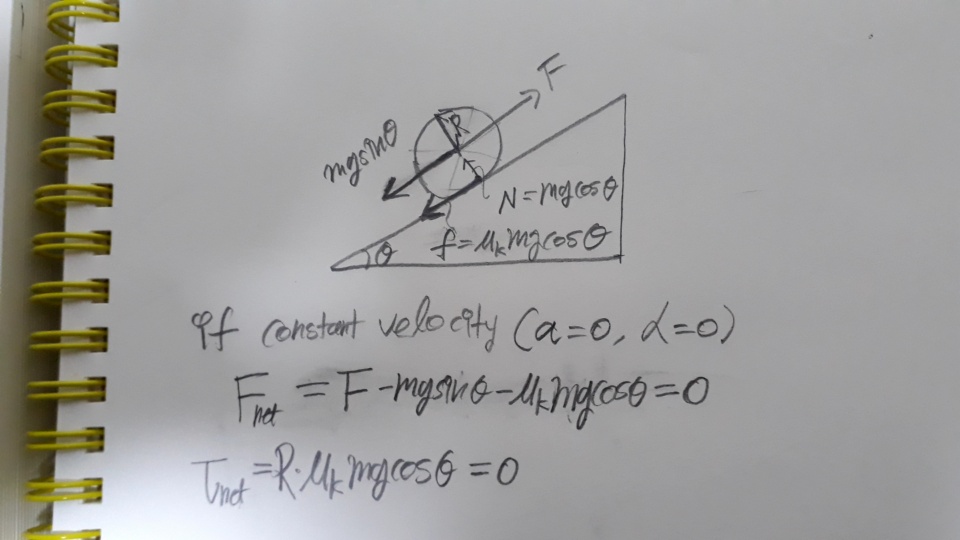 F
R
mgsinθ
N=mgcosθ
f=μₖmgcosθ
θ
if constant velocity (a=0, α=0)
F_net = F-mgsinθ-μₖmgcosθ=0
τ_net=R·μₖmgcosθ=0